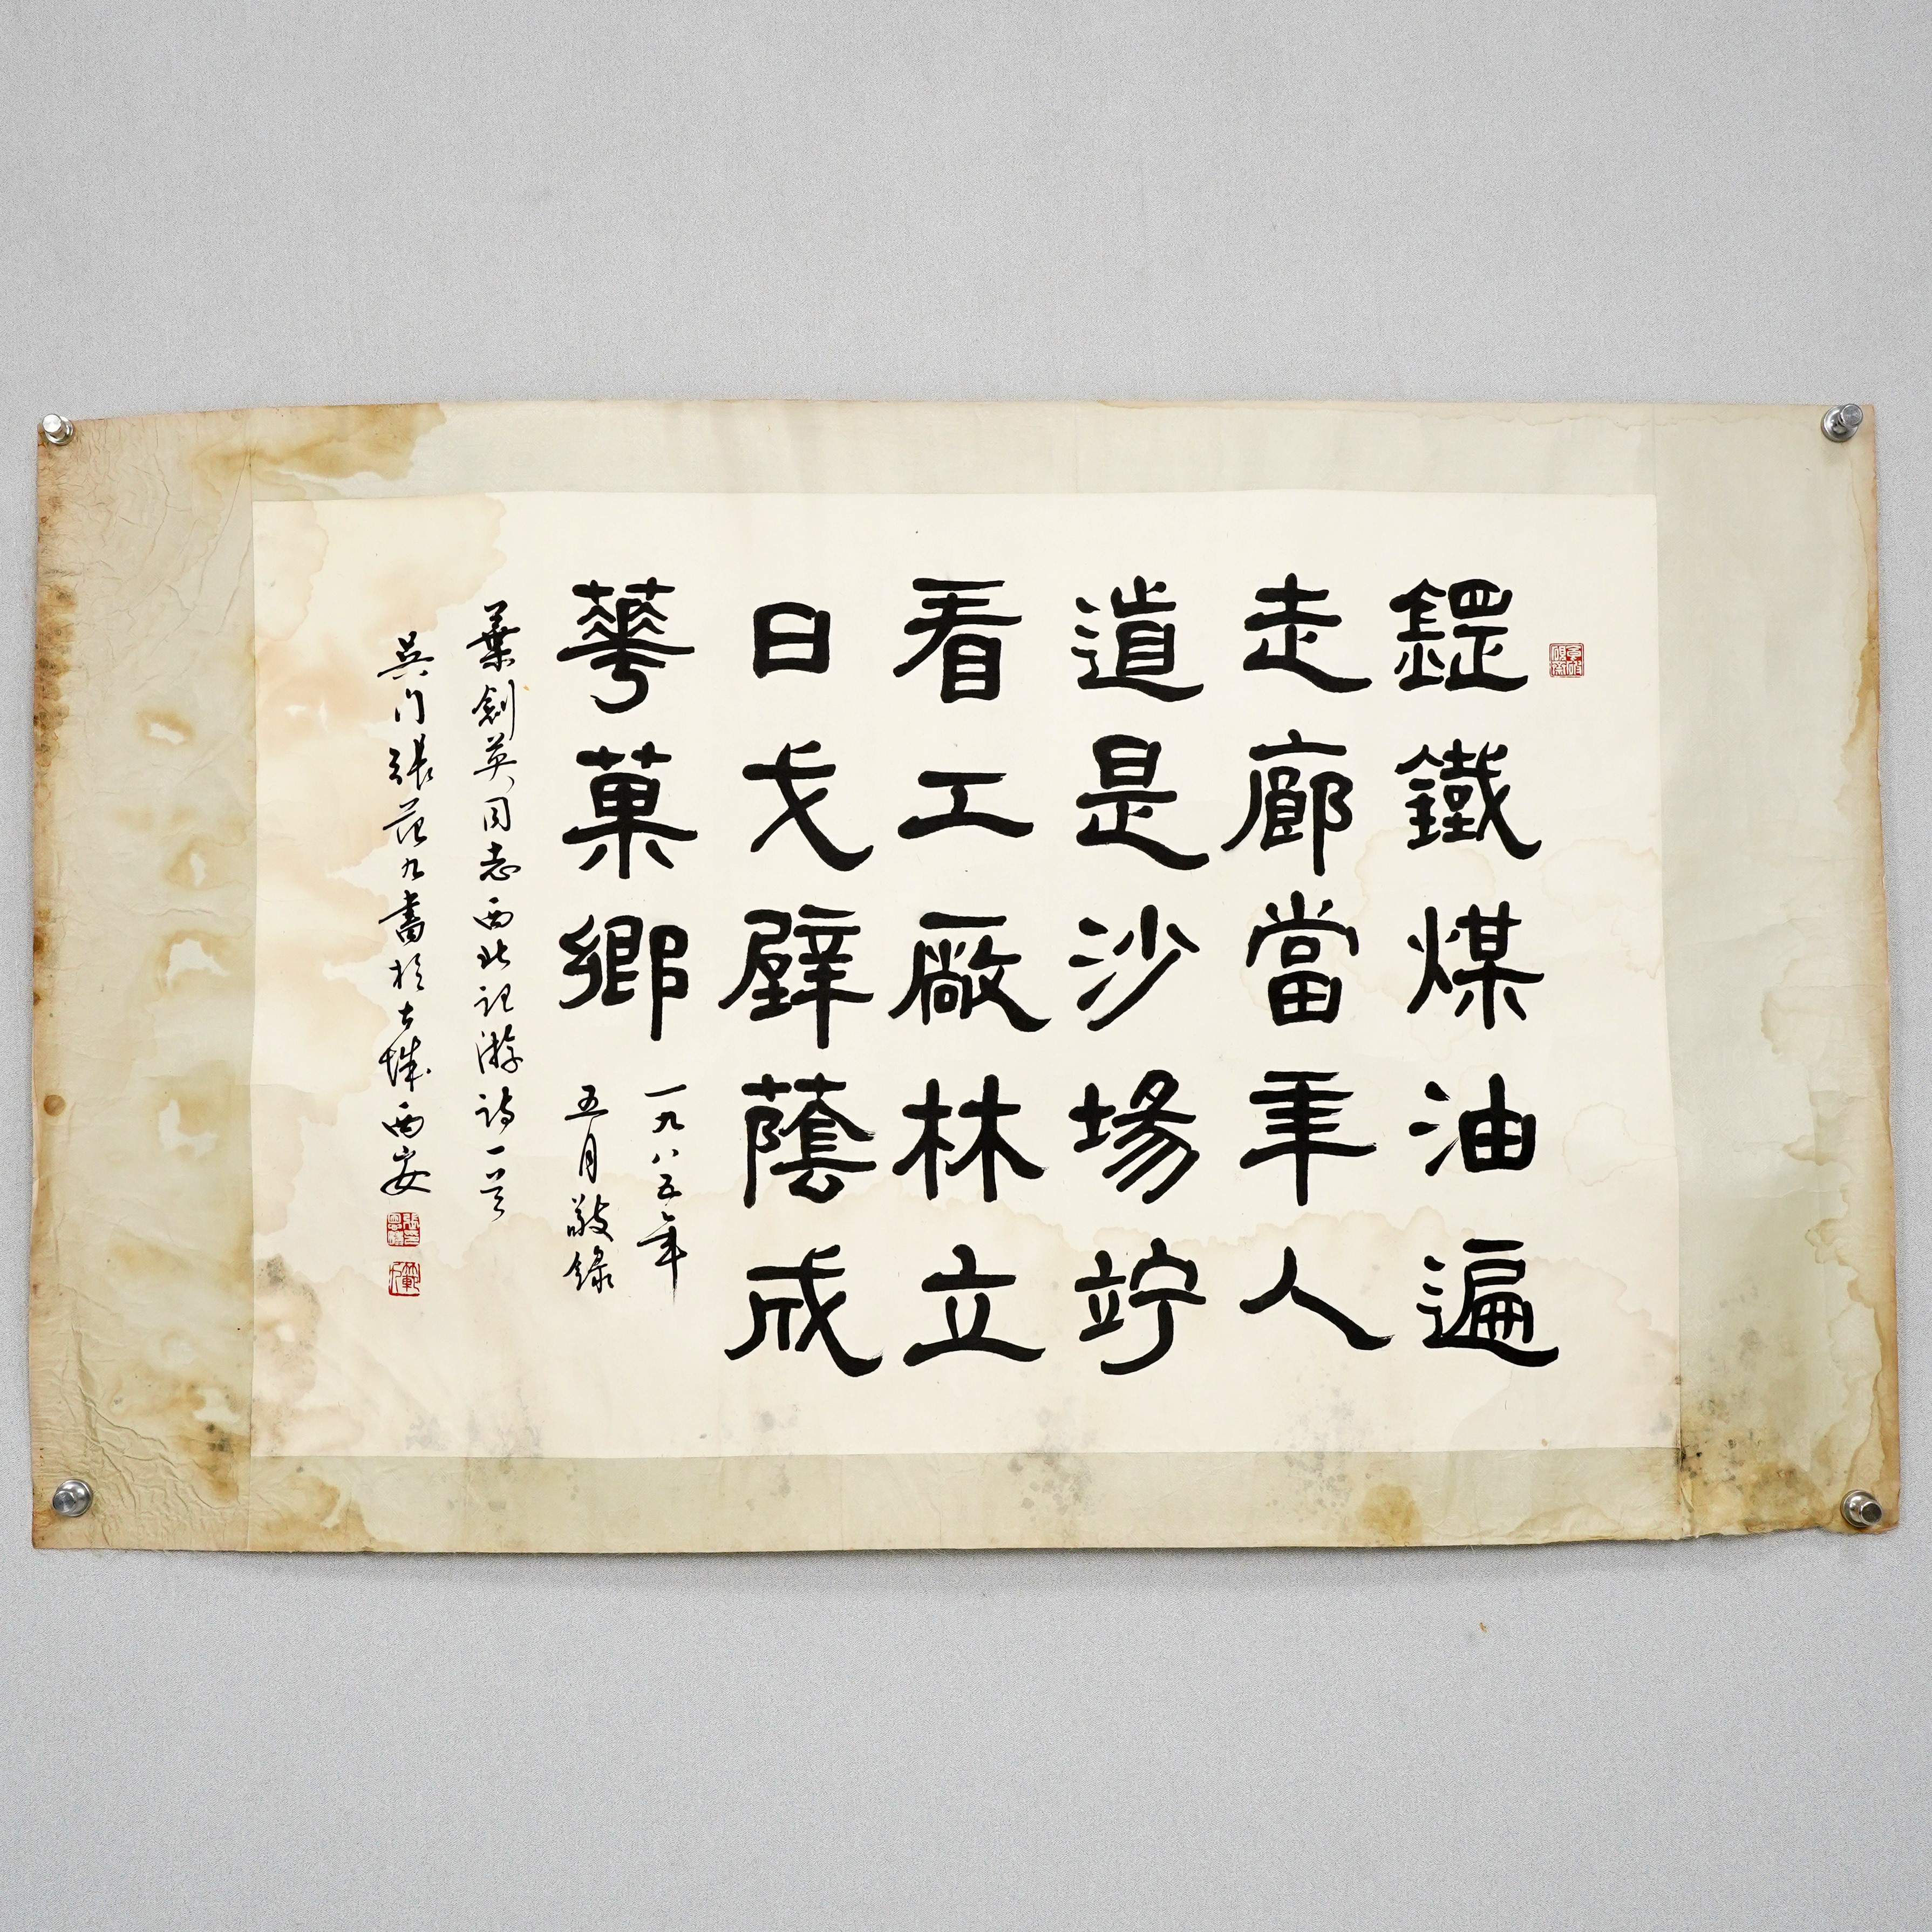 鐵煤油遍
走廊當年人
道是沙場竚
看工廠林立
日戈壁蔭成
華菓鄉
一九八五年
五月敬錄
葉劍英同志西北記游詩一首
吳门張范九書於古城西安